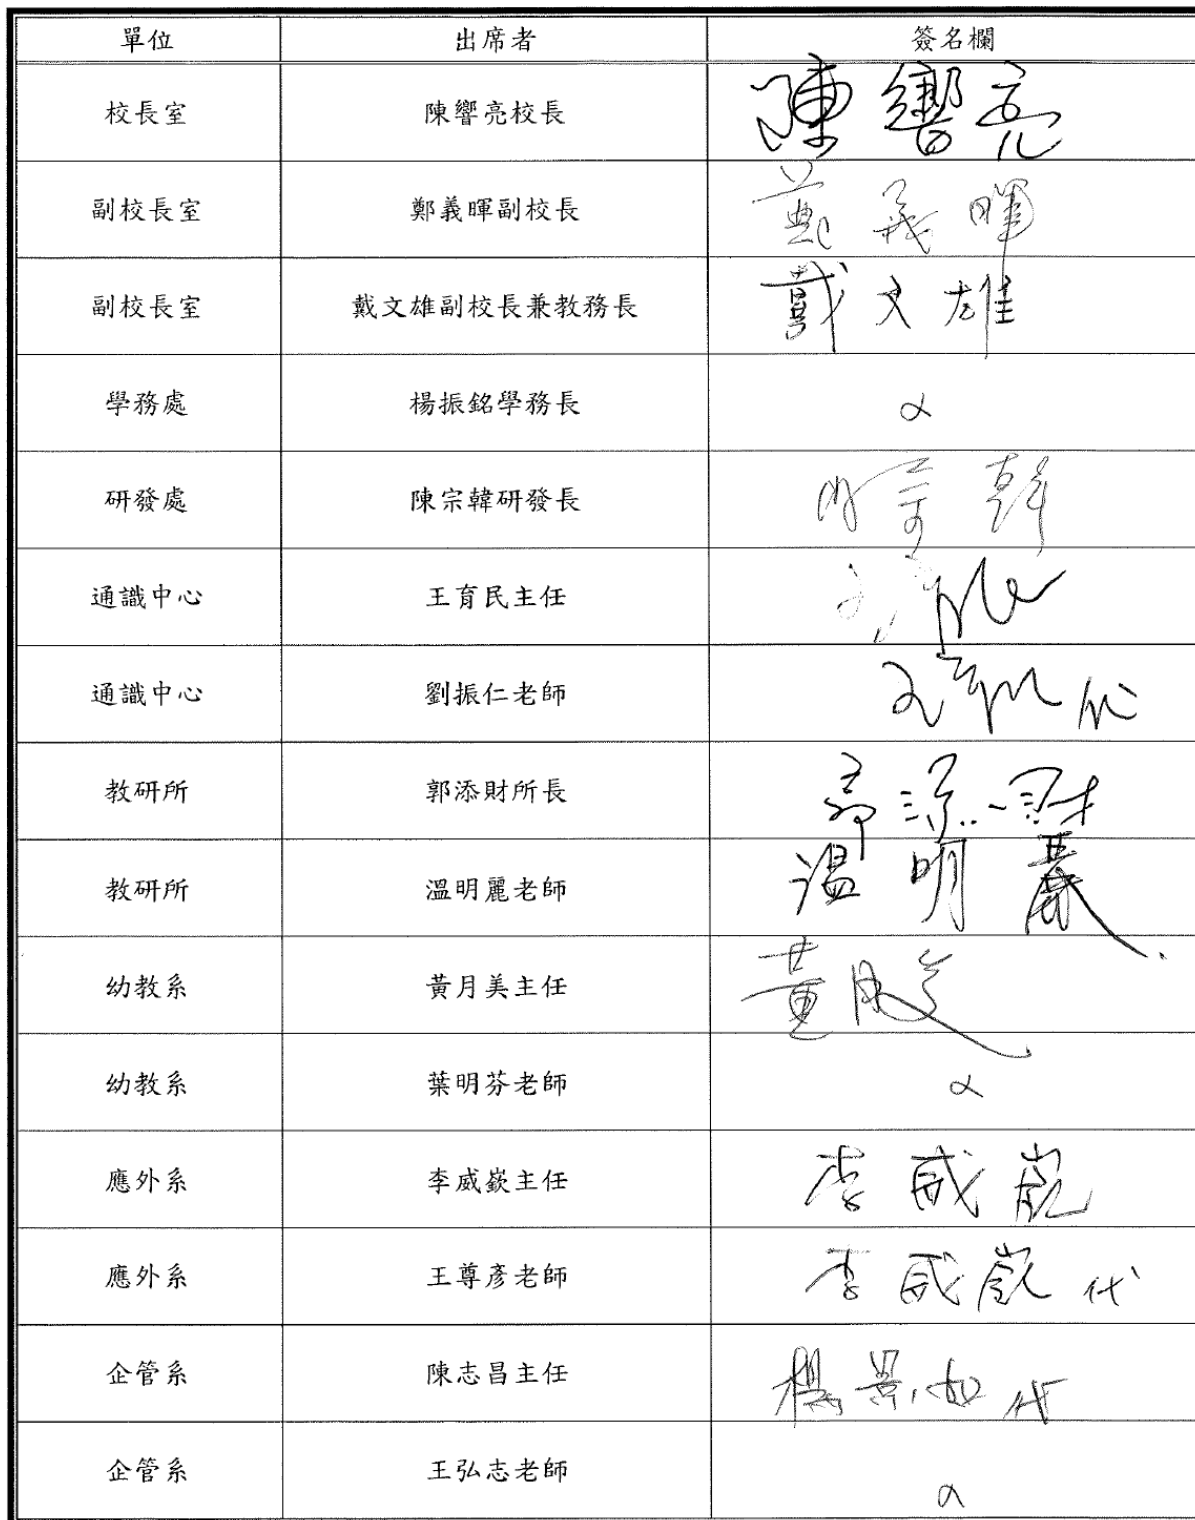 單位 出席者 簽名欄
校長室 陳響亮校長 陳響亮
副校長室 鄭義暉副校長 鄭義暉
副校長室 戴文雄副校長兼教務長 戴文雄
學務處 楊振銘學務長
研發處 陳宗韓研發長 陳宗韓
通識中心 王育民主任 王育民
通識中心 劉振仁老師 王育民代
教研所 郭添財所長 郭添財
教研所 溫明麗老師 溫明麗
幼教系 黃月美主任 黃月美
幼教系 葉明芬老師
應外系 李威嶔主任 李威嶔
應外系 王尊彥老師 李威嶔代
企管系 陳志昌主任 代
企管系 王弘志老師